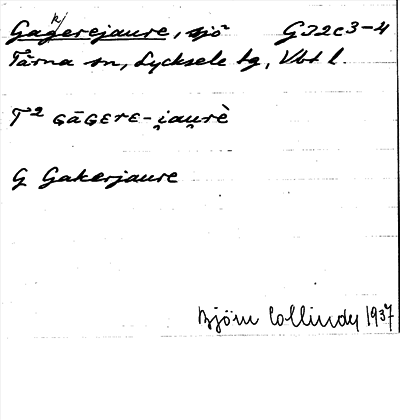 Gagerejaure, sjö G I2c3-4
k/
Tärna sn, Lycksele tg, Vbt l.
T² GāGɛrɛ-i̯au̯rè
G Gakerjaure
Björn Collinder 1937